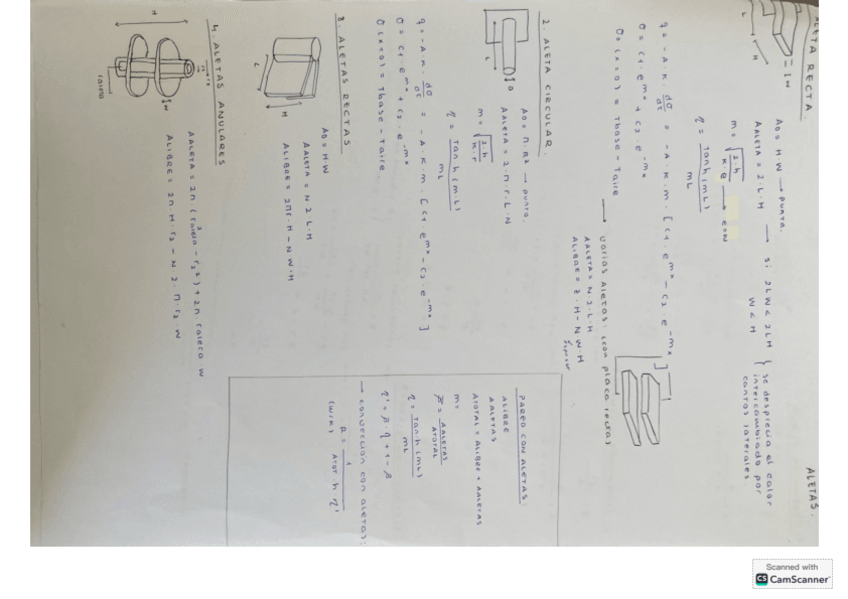 ALETAS.
ALETA RECTA.
L
H
W
A0 = H·W → punta.
Aaleta = 2·L·H → si 2LW < 2LH
W < H
se desprecia el calor
intercambiado por
cantos laterales
m = √(2·h / k·e) → e=W
η = tanh(mL) / mL
q = -A·k·dθ/dt = -A·k·m·[c1·e^mx - c2·e^-mx]
θ = c1·e^mx + c2·e^-mx
θ0(x=0) = Tbase - Taire
→ varias aletas: (con placa recta)
Aaleta = N·2·L·H
Alibre = Z·H - N·W·H
2. ALETA CIRCULAR.
L
D
A0 = π·R2 → punta.
Aaleta = 2·π·r·L·N
m = √(2·h / k·r)
η = tanh(m·L) / mL
q = -A·k·dθ/dt = -A·k·m·[c1·e^mx - c2·e^-mx]
θ = c1·e^mx + c2·e^-mx
θ(x=0) = Tbase - Taire
3. ALETAS RECTAS
L
H
A0 = H·W
Aaleta = N·2·L·H
Alibre = 2πr·H - N·W·H
4. ALETAS ANULARES
H
W
raleta
Aaleta = 2π(raleta² - r2²) + 2π·raleta·W
Alibre = 2π·H·r2 - N·2·π·r2·W
PARED CON ALETAS:
Alibre
Aaletas
Atotal = Alibre + Aaletas
m=
β = Aaletas / Atotal
η = tanh(mL) / mL
η' = β·η + 1 - β
→ convección con aletas:
R = 1 / Atot·h·η'
(W/K)
Scanned with
CS CamScanner